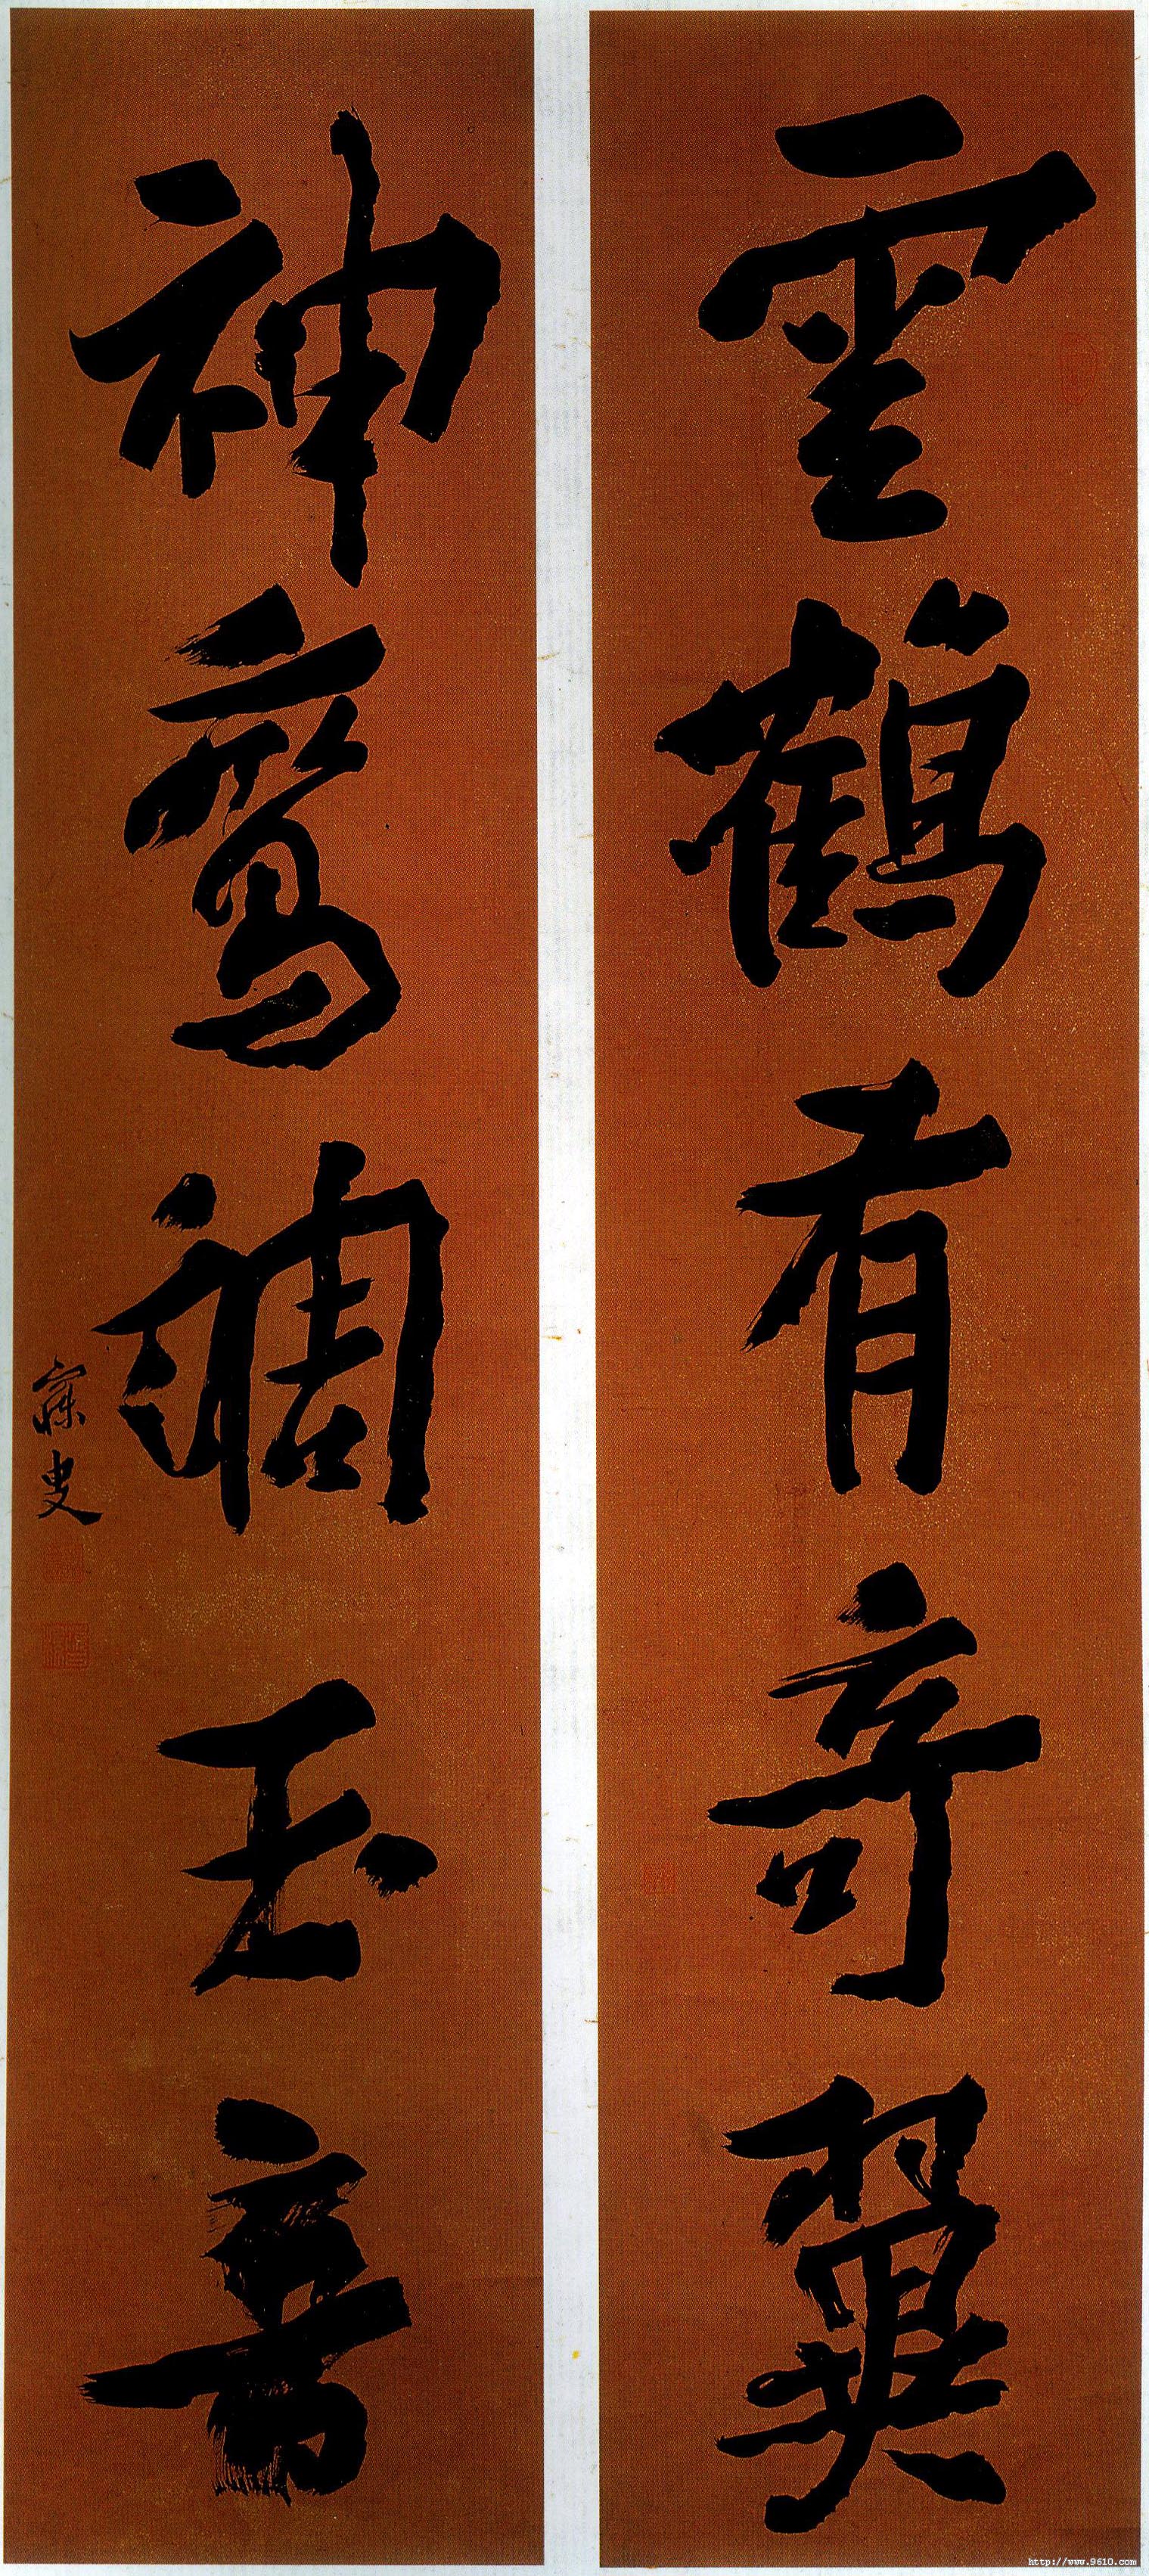 雲鶴有奇翼
神鸞調玉音
寐叟
http://www.9610.com